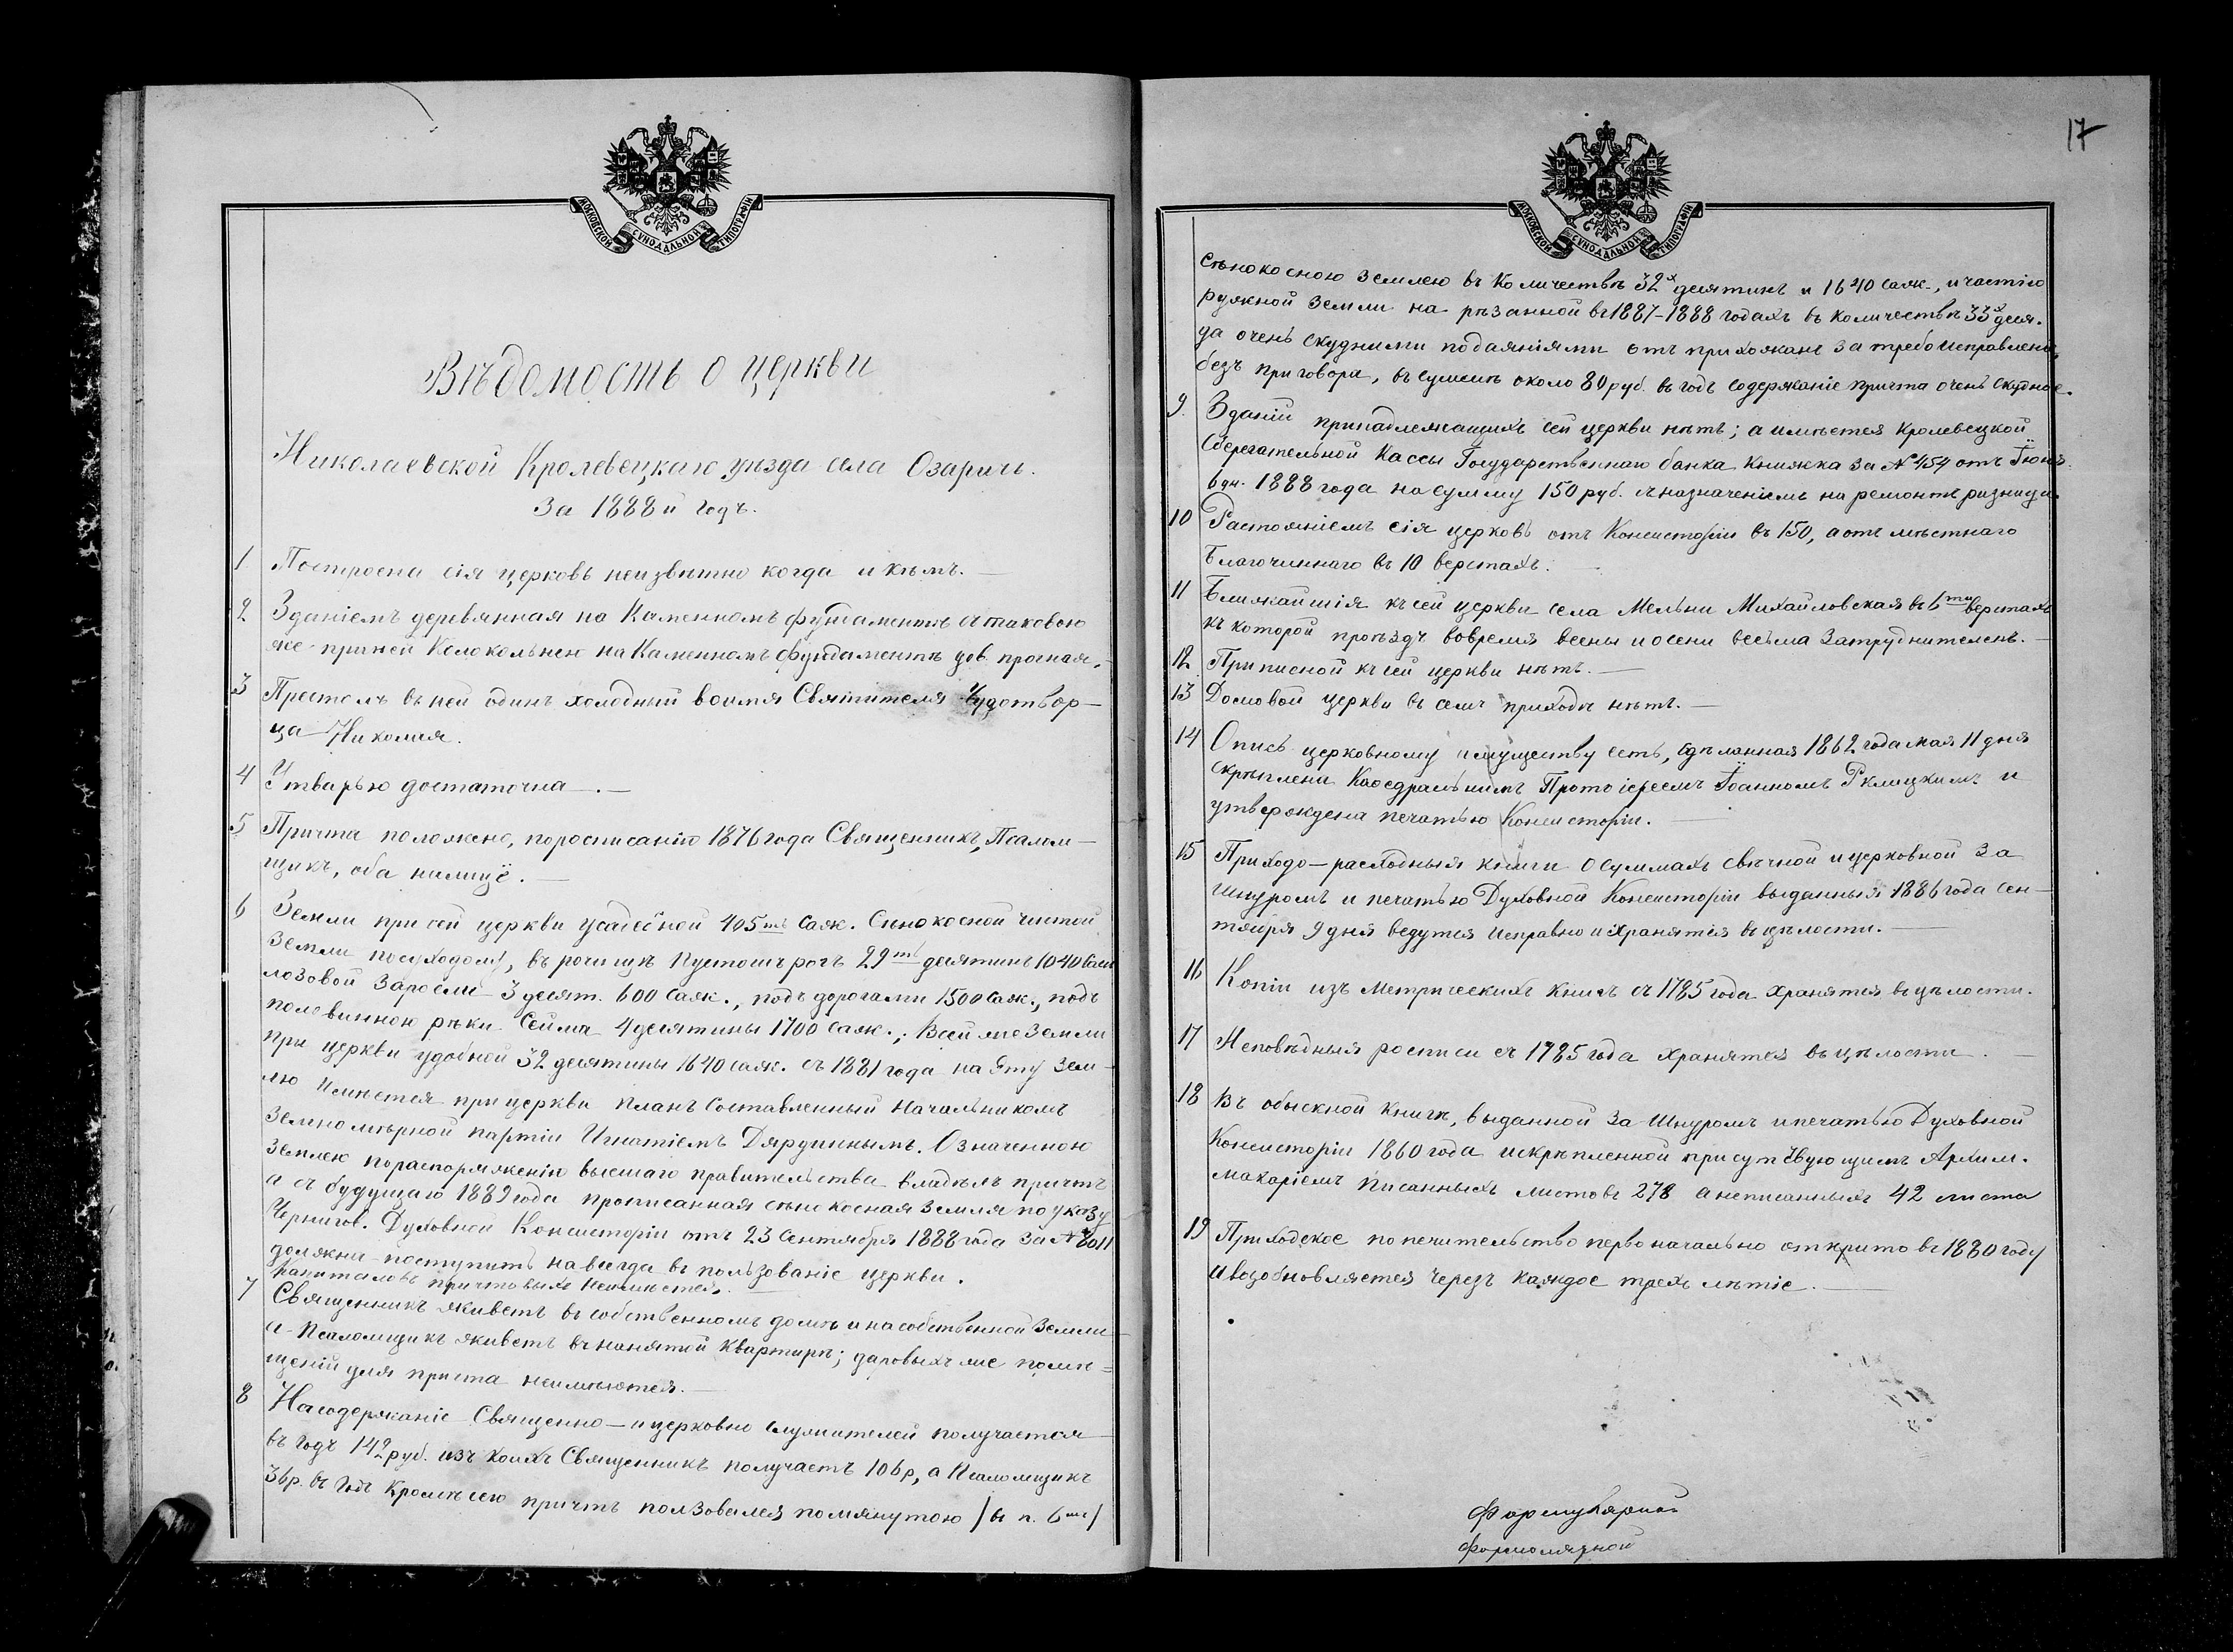 МОСКОВСКОЙ СУНОДАЛЬНОЙ ТИПОГРАФІИ
Вѣдомость о церкви
Николаевской Кролевецкаго уѣзда села Озаричъ.
За 1888й годъ.
1 Построена сія церковь неизвѣстно когда и кѣмъ. —
2 Зданіемъ деревянная на Каменномъ фундаментѣ съ таковою
же при ней Колокольнею на Каменномъ фундаментѣ дов. прочная. —
3 Престолъ въ ней одинъ холодный во имя Святителя Чудотвор—
ца Николая.
4 Утварью достаточна. —
5 Причта положено, по росписанію 1876 года Священникъ, Псалом—
щикъ, оба налицо. —
6 Земли при сей церкви усадебной 405ть саж. Сѣнокосной чистой
земли посуходолу, въ рочищѣ Пустошъ рогъ 29ть десятинъ 1040 саж
лозовой заросли 3 десят. 600 саж., подъ дорогами 1500 саж., подъ
половинною рѣки Сейма 4 десятины 1700 саж.; Всей же земли
при церкви удобной 32 десятины 1640 саж. съ 1881 года на эту зем—
лю имѣется при церкви планъ составленный Начальникомъ
Земломѣрной партіи Игнатіемъ. Означенною
землею по распоряженію высшаго правительства владѣлъ причтъ
а съ будущаго 1889 года прописанная сѣнокосная земля по указу
Чернигов. Духовной Консисторіи отъ 23 Сентября 1888 года за №
должна поступить навсегда въ пользованіе церкви.
Капиталовъ причтовыхъ неимѣется.
7 Священникъ живетъ въ собственномъ домѣ и на собственной земли
а Псаломщикъ живетъ въ нанятой Квартирѣ; даровыхъ же помѣ=
щеній для причта неимѣются. —
8 На содержаніе Священно—и церковно служителей получается
въ годъ 142 руб. изъ коихъ Священникъ получаетъ 106 р, а Псаломщикъ
36 р. въ годъ Кромѣ сего причтъ ползовался помянутою /въ п. 6мъ/
17
МОСКОВСКОЙ СУНОДАЛЬНОЙ ТИПОГРАФІИ
сѣнокосною землею въ Количествѣ 32х десятинъ и 1640 саж., и частію
ружной земли на рѣзанной въ 1887-1888 годахъ въ количествѣ 33х деся.
да очень скудними подаяніями отъ прихожанъ за требоисправленія,
безъ приговора, въ сумѣ около 80 руб. въ годъ содержаніе причта очень скудное.
9. Зданій принадлежащихъ сей церкви нѣтъ; а имѣется Кролевецкой
Сберегательной Кассы Государственнаго банка Книжка за № 454 отъ Іюня
6 дн. 1888 года на сумму 150 руб. съ назначеніемъ на ремонтъ ризници.
10 Растояніемъ сія церковь отъ Консисторіи въ 150, а отъ мѣстнаго
Благочиннаго въ 10 верстахъ. —
11 Ближайшія къ сей церкви села Мельни Михайловская въ 6ти верстахъ
къ которой проѣздъ вовремя весны и осени весьма затруднителенъ. —
12 Приписной къ сей церкви нѣтъ. —
13 Домовой церкви въ семъ приходѣ нѣтъ. —
14 Опись церковному имуществу есть, сдѣланная 1862 года мая 11 дня
скрѣплена Каѳедральнимъ Протоіереемъ Іоанномъ Рклицкимъ и
утверждена печатью Консисторіи. —
15 Приходо—расходныя книги о суммахъ свѣчной и церковной за
шнуромъ и печатью Духовной Консисторіи выданныя 1886 года Сен—
тября 9 дня ведутся исправно и хранятся въ цѣлости. —
16 Копіи изъ Метрическихъ Книгъ съ 1785 года хранятся въ цѣлости.
17 Исповѣдныя росписи съ 1785 года хранятся въ цѣлости. —
18 Въ обыскной Книгѣ, выданной за Шнуромъ и печатью Духовной
Консисторіи 1860 года и скрѣпленной присутствующимъ Архим.
Макаріемъ писанныхъ листовъ 278 а неписанныхъ 42 листа
19 Приходское попечительство первоначально открито въ 1880 году
И возобновляется черезъ каждое трехлѣтіе. —
Формулярной